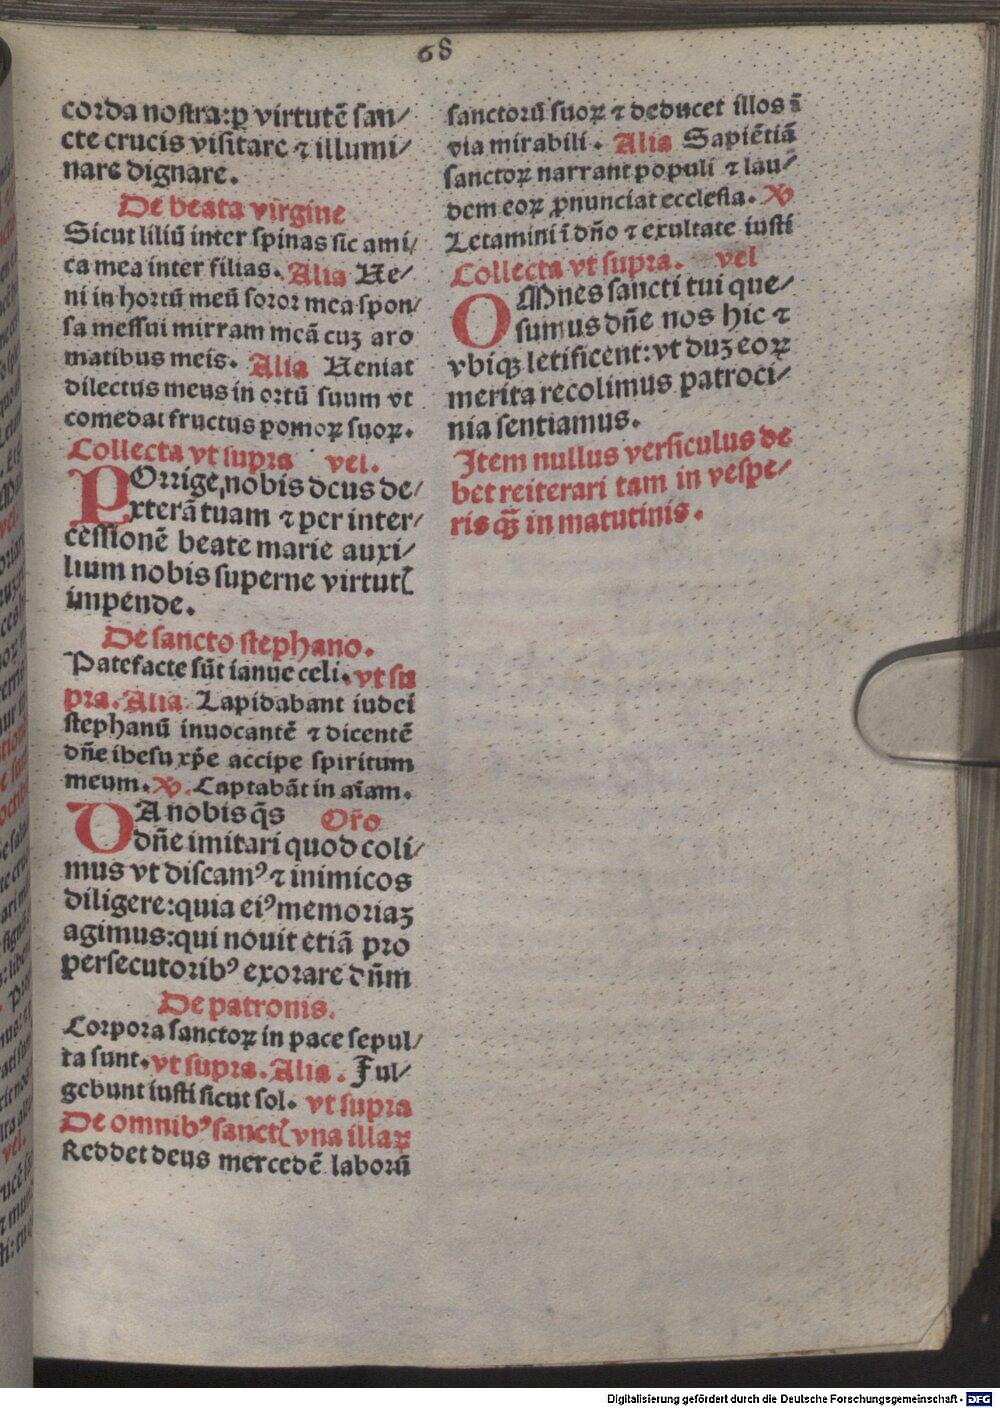 68
corda nostra: ꝑ virtutē san⸗
cte crucis visitare ⁊ illumi⸗
nare dignare.
De beata virgine
Sicut liliū inter spinas sic ami⸗
ca mea inter filias. Alia Ue⸗
ni in hortū meū soror mea spon⸗
sa messui mirram meā cuz aro
matibus meis. Alia Ueniat
dilectus meus in ortū suum vt
comedat fructus pomoꝝ suoꝝ.
Collecta vt supra vel.
POrrige nobis deus de⸗
xterā tuam ⁊ per inter⸗
cessionē beate marie auxi⸗
lium nobis superne virtutꝭ
impende.
De sancto stephano.
Patefacte sūt ianue celi. vt su
pra. Alia. Lapidabant iudei
stephanū inuocantē ⁊ dicentē
dn̄e ihesu xp̄e accipe spiritum
meum. ℣. Captabāt in aīam.
DA nobis q̄s Or̄o
dn̄e imitari quod coli⸗
mus vt discamꝰ ⁊ inimicos
diligere: quia eiꝰ memoriaꝫ
agimus: qui nouit etiā pro
persecutoribꝰ exorare dn̄m
De patronis.
Corpora sanctoꝝ in pace sepul⸗
ta sunt. vt supra. Alia. Ful⸗
gebunt iusti sicut sol. vt supra
De omnibꝰ sanctꝭ vna illaꝝ
Reddet deus mercedē laborū
sanctorū suoꝝ ⁊ deducet illos ī
via mirabili. Alia Sapiētiā
sanctoꝝ narrant populi ⁊ lau⸗
dem eoꝝ ꝓnunciat ecclesia. ℣
Letamini ī dn̄o ⁊ exultate iusti
Collecta vt supra. vel
OMnes sancti tui que⸗
sumus dn̄e nos hic ⁊
vbiqꝫ letificent: vt duꝫ eoꝝ
merita recolimus patroci⸗
nia sentiamus.
Item nullus versiculus de
bet reiterari tam in vespe⸗
ris qꝫ̄ in matutinis.
Digitalisierung gefördert durch die Deutsche Forschungsgemeinschaft - DFG